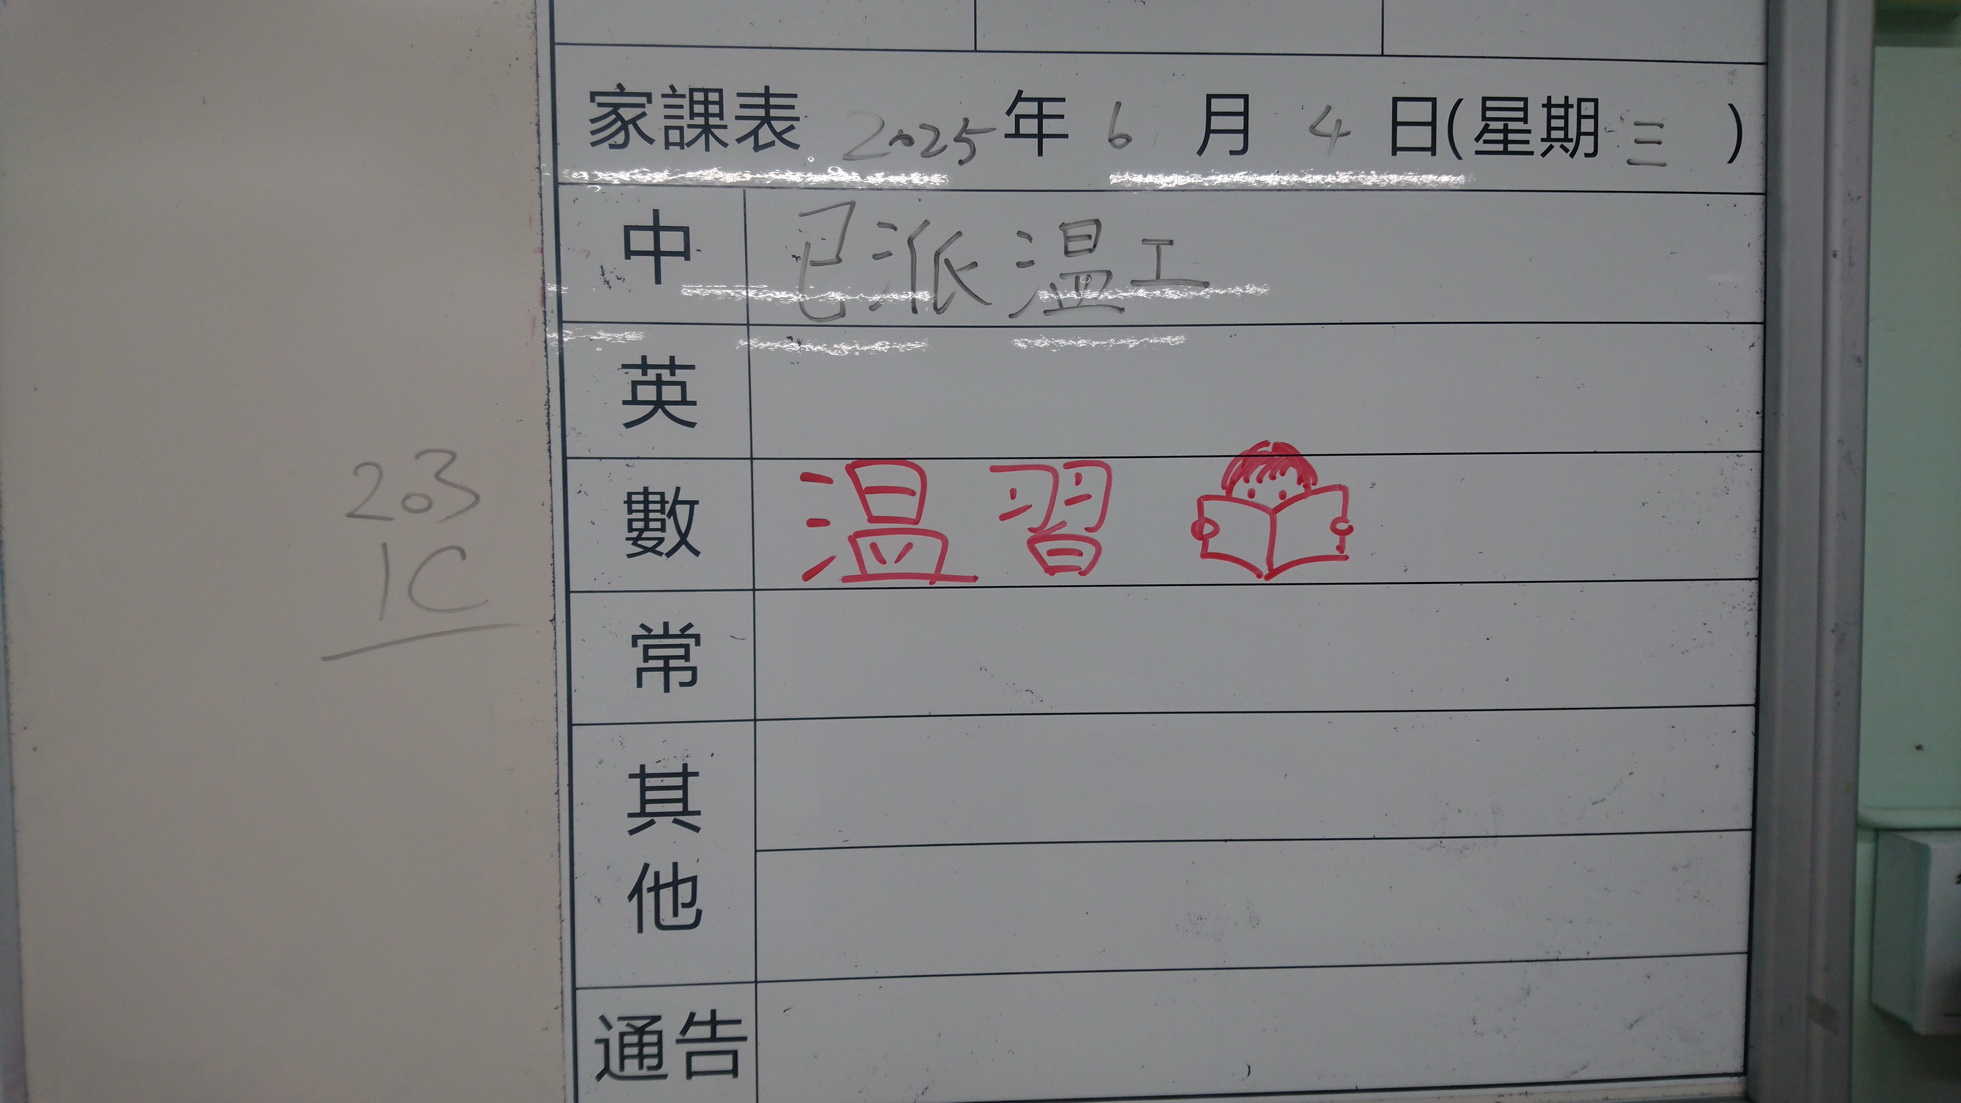 家課表 2025年 6 月 4 日(星期 三 )
中 已派溫工
英
數 溫習
常
其他
通告
203
1C